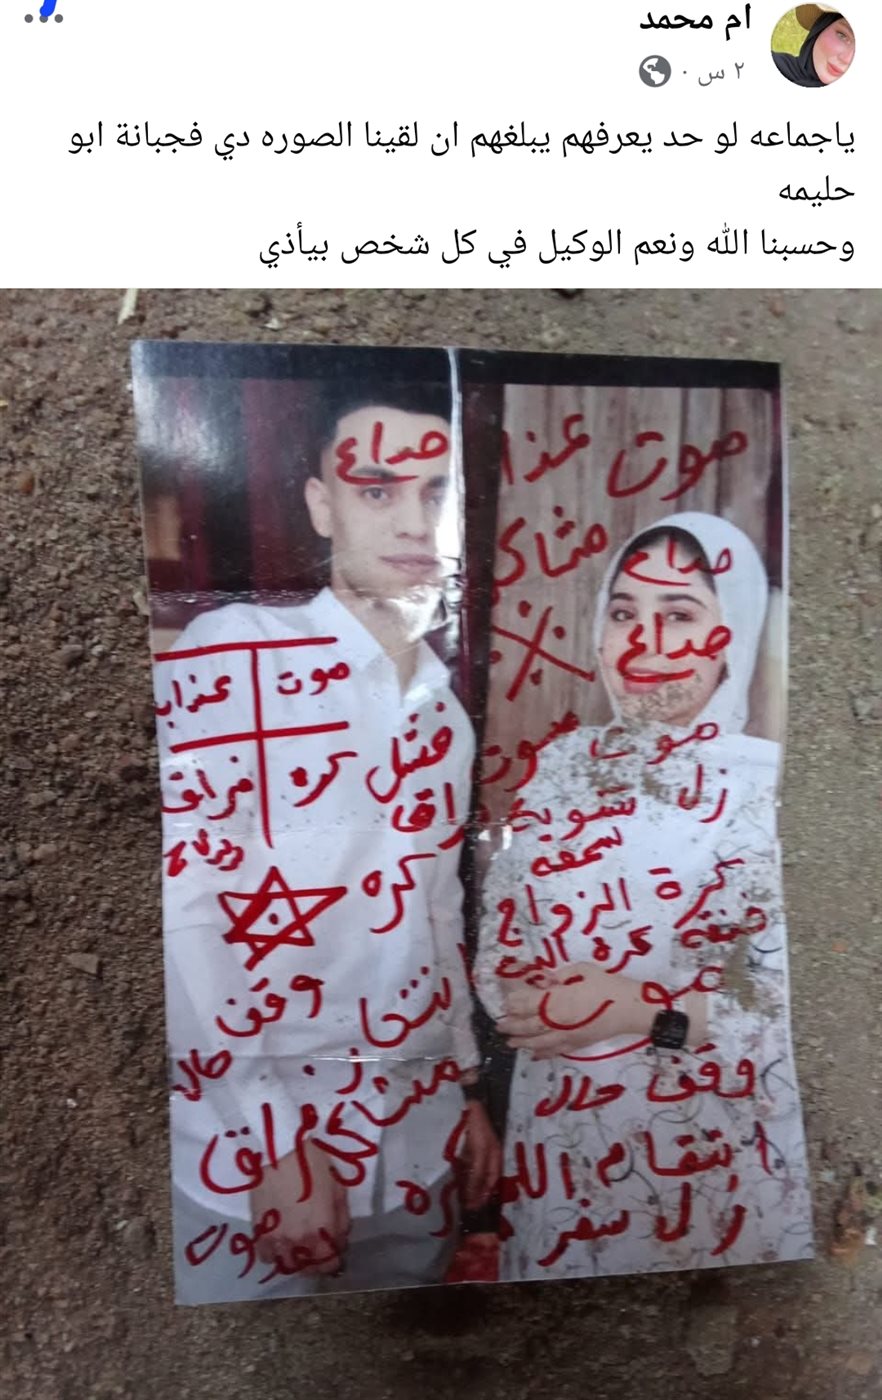 ام محمد
٢ س ·
ياجماعه لو حد يعرفهم يبلغهم ان لقينا الصوره دي فجبانة ابو
حليمه
وحسبنا الله ونعم الوكيل في كل شخص بيأذي
صداع
موت عذا
مشاكل
صداع
صداع
موت عذاب
كره فراق
فشل
موت موت
زل
فراق
سمعه
كره
كرة الزواج
كرة البيت
موت
وقف حال
انتحار
وقف حال
مشاكل
فراق
انتقام الله
كره
زل سفر
موت